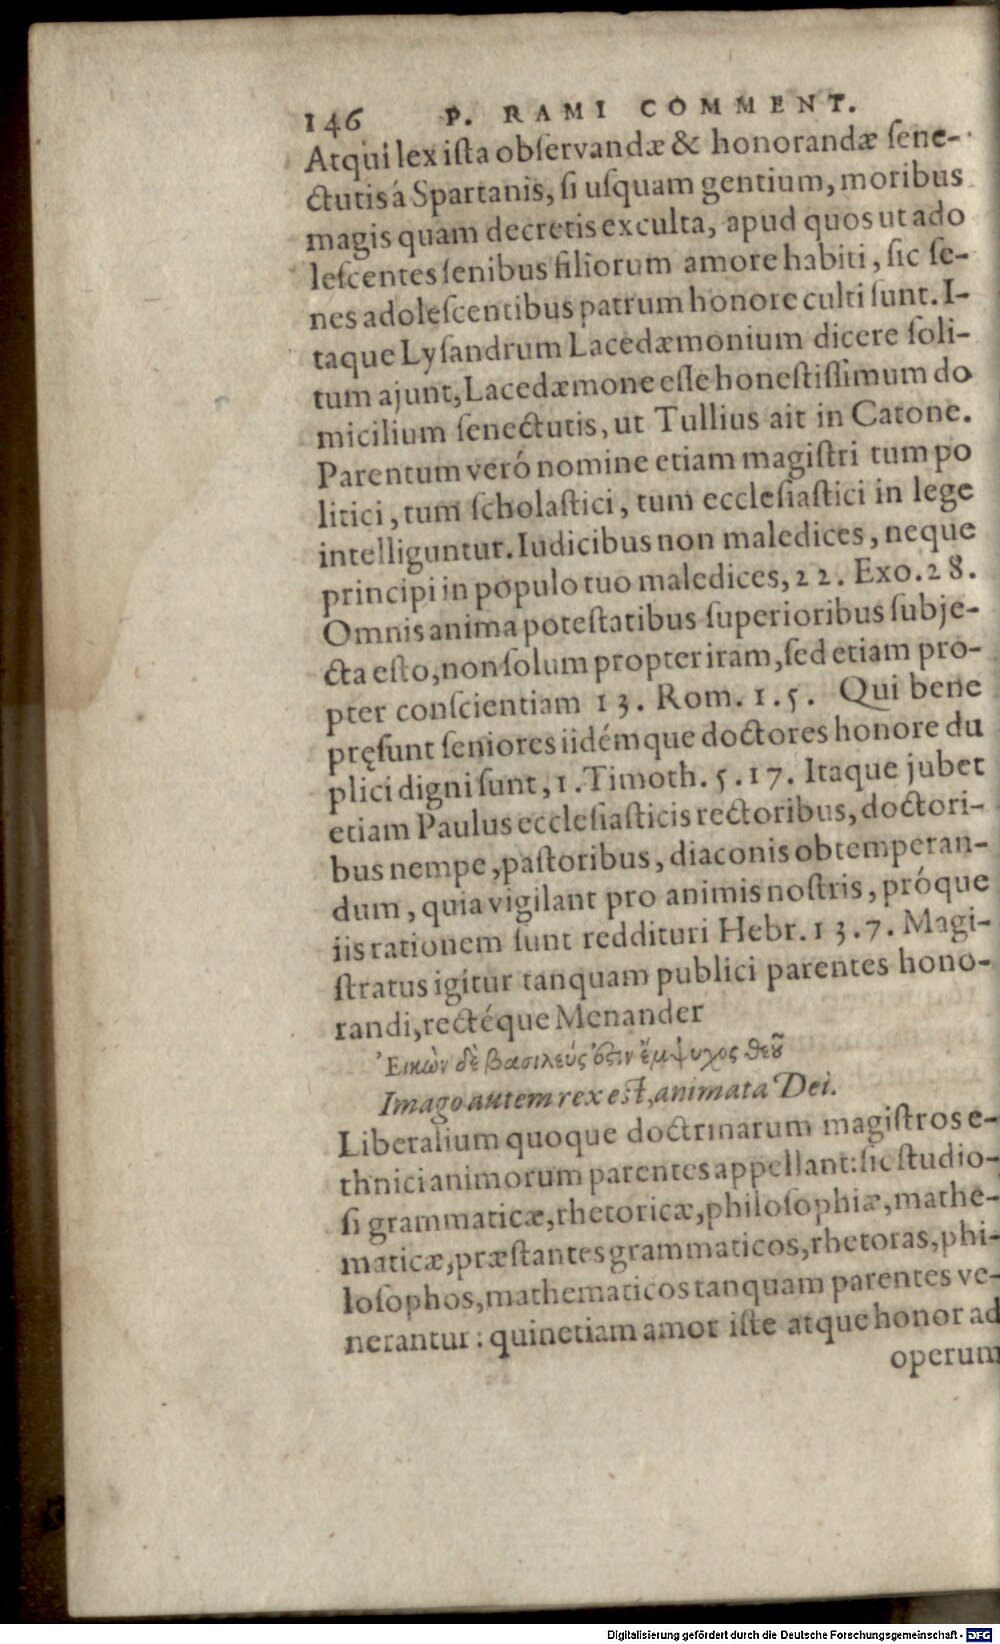 146 P. RAMI COMMENT.
Atqui lex ista observandæ & honorandæ sene-
ctutis á Spartanis, si usquam gentium, moribus
magis quam decretis exculta, apud quos ut ado
lescentes senibus filiorum amore habiti, sic se-
nes adolescentibus patrum honore culti sunt. I-
taque Lysandrum Lacedæmonium dicere soli-
tum ajunt, Lacedæmone esse honestissimum do
micilium senectutis, ut Tullius ait in Catone.
Parentum veró nomine etiam magistri tum po
litici, tum scholastici, tum ecclesiastici in lege
intelliguntur. Iudicibus non maledices, neque
principi in populo tuo maledices, 22. Exo. 28.
Omnis anima potestatibus superioribus subje-
cta esto, non solum propter iram, sed etiam pro-
pter conscientiam 13. Rom. 1.5. Qui bene
pręsunt seniores iidémque doctores honore du
plici digni sunt, 1. Timoth. 5.17. Itaque jubet
etiam Paulus ecclesiasticis rectoribus, doctori-
bus nempe, pastoribus, diaconis obtemperan-
dum, quia vigilant pro animis nostris, próque
iis rationem sunt reddituri Hebr. 13.7. Magi-
stratus igitur tanquam publici parentes hono-
randi, rectéque Menander
Ἐικὼν δὲ βασιλεύς ἐστιν ἔμψυχος θεοῦ
Imago autem rex est, animata Dei.
Liberalium quoque doctrinarum magistros e-
thnici animorum parentes appellant: sic studio-
si grammaticæ, rhetoricæ, philosophiæ, mathe-
maticæ, præstantes grammaticos, rhetoras, phi-
losophos, mathematicos tanquam parentes ve-
nerantur: quinetiam amor iste atque honor ad
operum
Digitalisierung gefördert durch die Deutsche Forschungsgemeinschaft - DFG